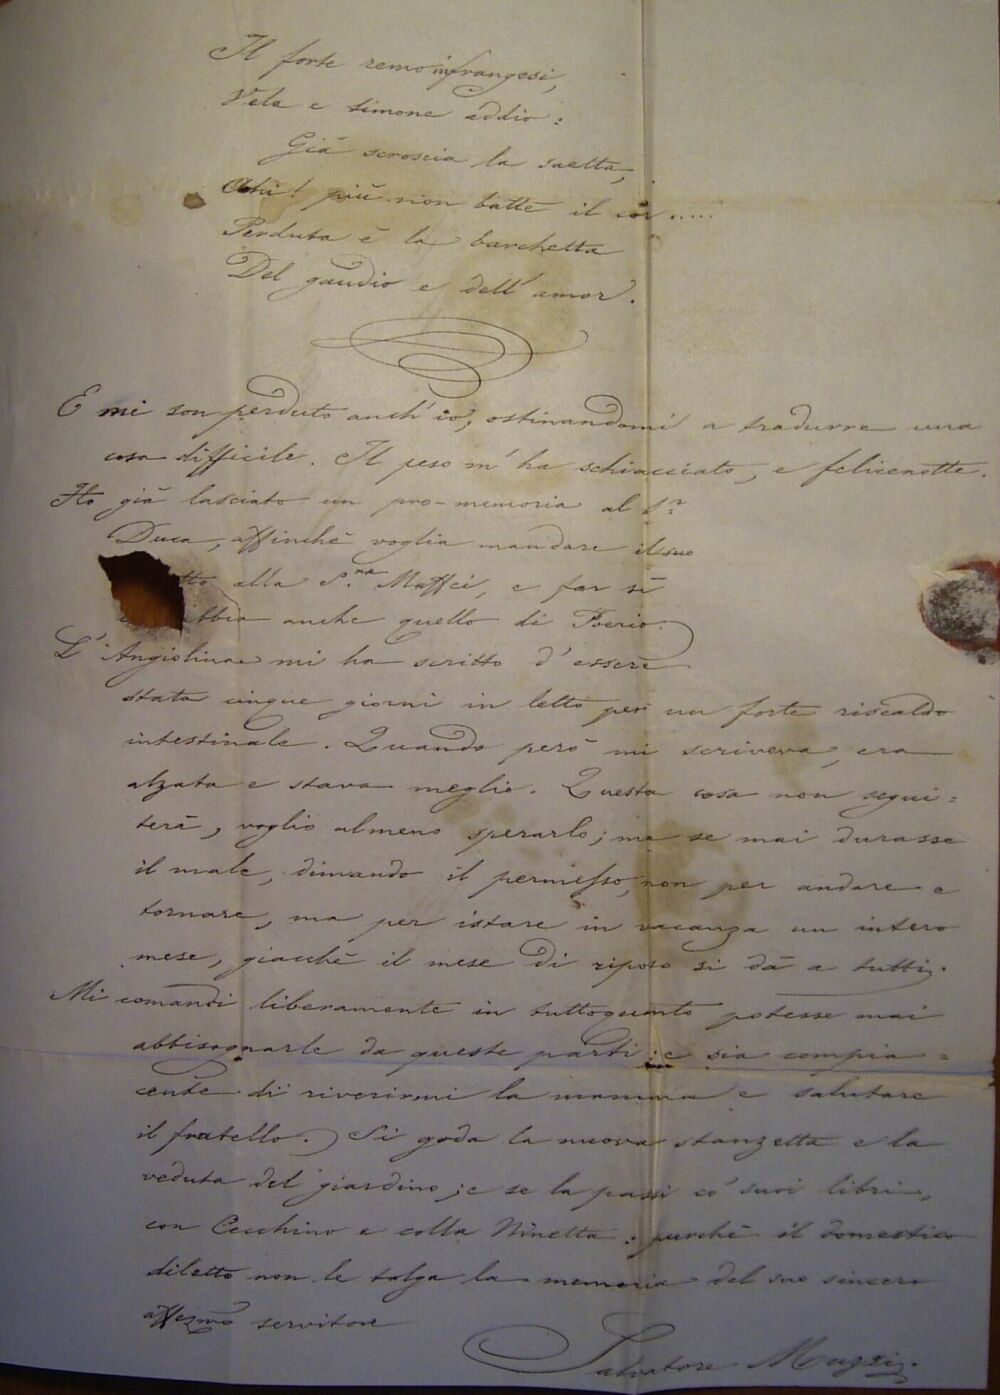 Il forte remo infrangesi,
Vela e timone addio:
Già scroscia la saetta,
Ahi! più non batte il cor.....
Perduta è la barchetta
Del gaudio e dell'amor.
E mi son perduto anch'io, ostinandomi a tradurre una
cosa difficile. Il peso m'ha schiacciato, e felicenotte.
Ho già lasciato un pro-memoria al S.r
Duca, affinchè voglia mandare il suo
tto alla S.ra Maffei, e far sì
abbia anche quello di Poerio.
L'Angiolina mi ha scritto d'essere
stata cinque giorni in letto per un forte riscaldo
intestinale. Quando però mi scriveva, era
alzata e stava meglio. Questa cosa non segui=
terà, voglio almeno sperarlo; ma se mai durasse
il male, dimando il permesso, non per andare e
tornare, ma per istare in vacanza un intero
mese, giacchè il mese di riposo si dà a tutti.
Mi comandi liberamente in tuttoquanto potesse mai
abbisognarle da queste parti: e sia compia=
cente di riverirmi la mamma e salutare
il fratello. Si goda la nuova stanzetta e la
veduta del giardino; e se la passi co' suoi libri,
con Cecchino e colla Ninetta: purchè il domestico
diletto non le tolga la memoria del suo sincero
affezmo servitore
Salvatore Muzzi.